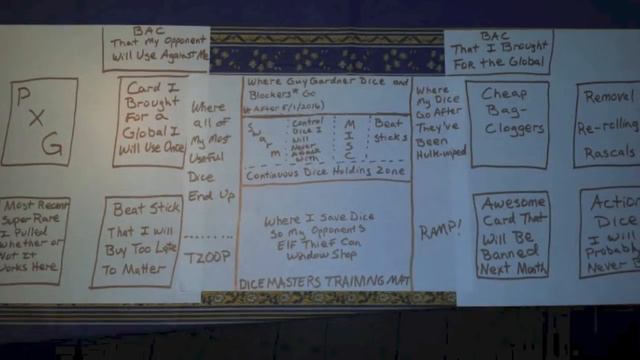 BAC
That my Opponent
Will Use Against Me
BAC
That I Brought
For the Global
P
X
G
Card I
Brought
For a
Global I
Will Use Once
Where
all of
My Most
Useful
Dice
End Up
TZOOP
Where Guy Gardner Dice and
Blockers* Go
* After 5/1/2016)
Swarm
Control
Dice I
Will
Never
Attack
With
MISC
Beat
Sticks
Continuous Dice Holding Zone
Where I Save Dice
So My Opponent's
Elf Thief Can
Window Shop
DICEMASTERS TRAINING MAT
Where
My Dice
Go After
They've
Been
Hulk-umped
RAMP!
Cheap
Bag-
Cloggers
Removal
Re-rolling
Rascals
Most Recent
Super Rare
I Pulled
Whether or
Not It
Works Here
Beat Stick
That I Will
Buy Too Late
To Matter
Awesome
Card That
Will Be
Banned
Next Month
Action
Dice
I Will
Probably
Never